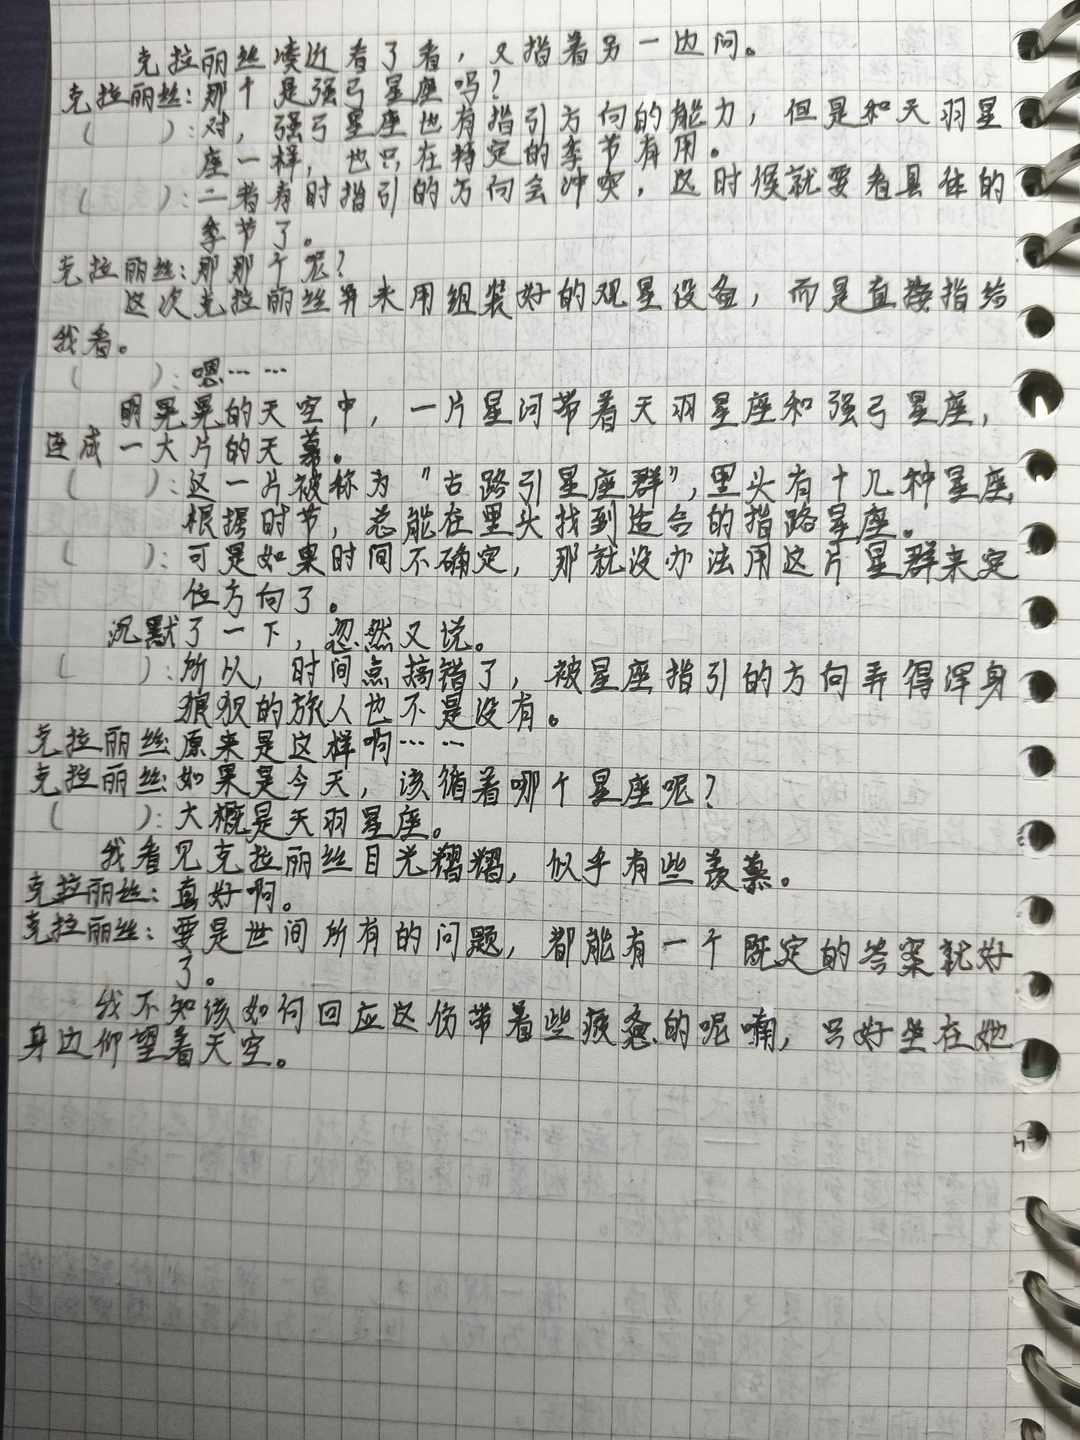 克拉丽丝凑近看了看，又指着另一边问。
克拉丽丝：那个是强弓星座吗？
（　　）：对，强弓星座也有指引方向的能力，但是和天羽星
座一样，也只在特定的季节有用。
（　　）：二者有时指引的方向会冲突，这时候就要看具体的
季节了。
克拉丽丝：那那个呢？
这次克拉丽丝并未用组装好的观星设备，而是直接指给
我看。
（　　）：嗯……
明晃晃的天空中，一片星河带着天羽星座和强弓星座，
连成一大片的天幕。
（　　）：这一片被称为“古路引星座群”，里头有十几种星座，
根据时节，总能在里头找到适合的指路星座。
（　　）：可是如果时间不确定，那就没办法用这片星群来定
位方向了。
沉默了一下，忽然又说。
（　　）：所以，时间点搞错了，被星座指引的方向弄得浑身
狼狈的旅人也不是没有。
克拉丽丝：原来是这样啊……
克拉丽丝：如果是今天，该循着哪个星座呢？
（　　）：大概是天羽星座。
我看见克拉丽丝目光熠熠，似乎有些羡慕。
克拉丽丝：真好啊。
克拉丽丝：要是世间所有的问题，都能有一个既定的答案就好
了。
我不知该如何回应这份带着些疲惫的呢喃，只好坐在她
身边仰望着天空。